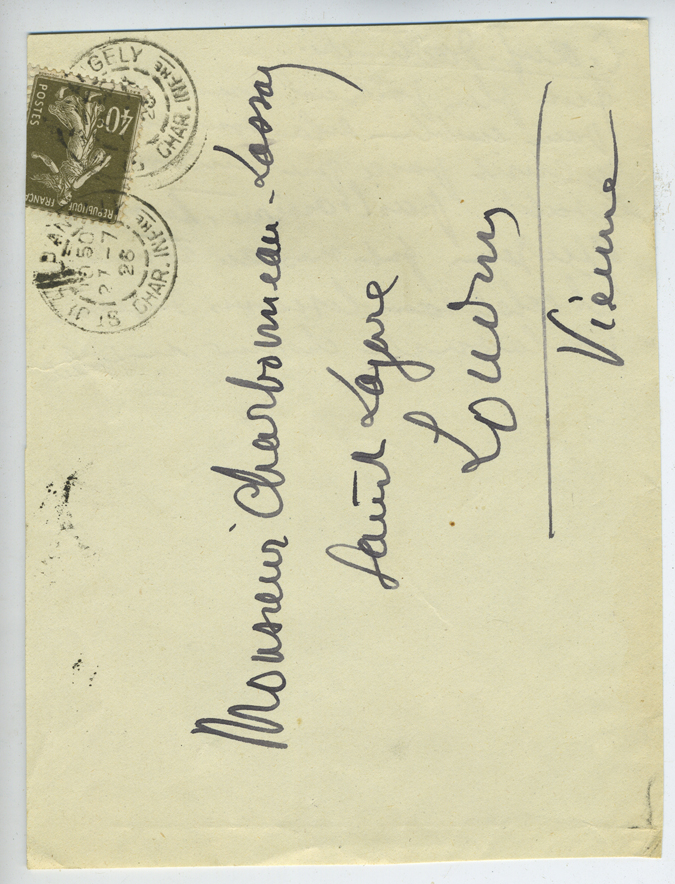 Monsieur Charbonneau-Lassay
Saint Lazare
Loudun
Vienne
40c
POSTES
REPUBLIQUE FRANCAI
GELY
CHAR. INFRE
D'AN
10 50
27-7
26
ST J
CHAR. INFRE